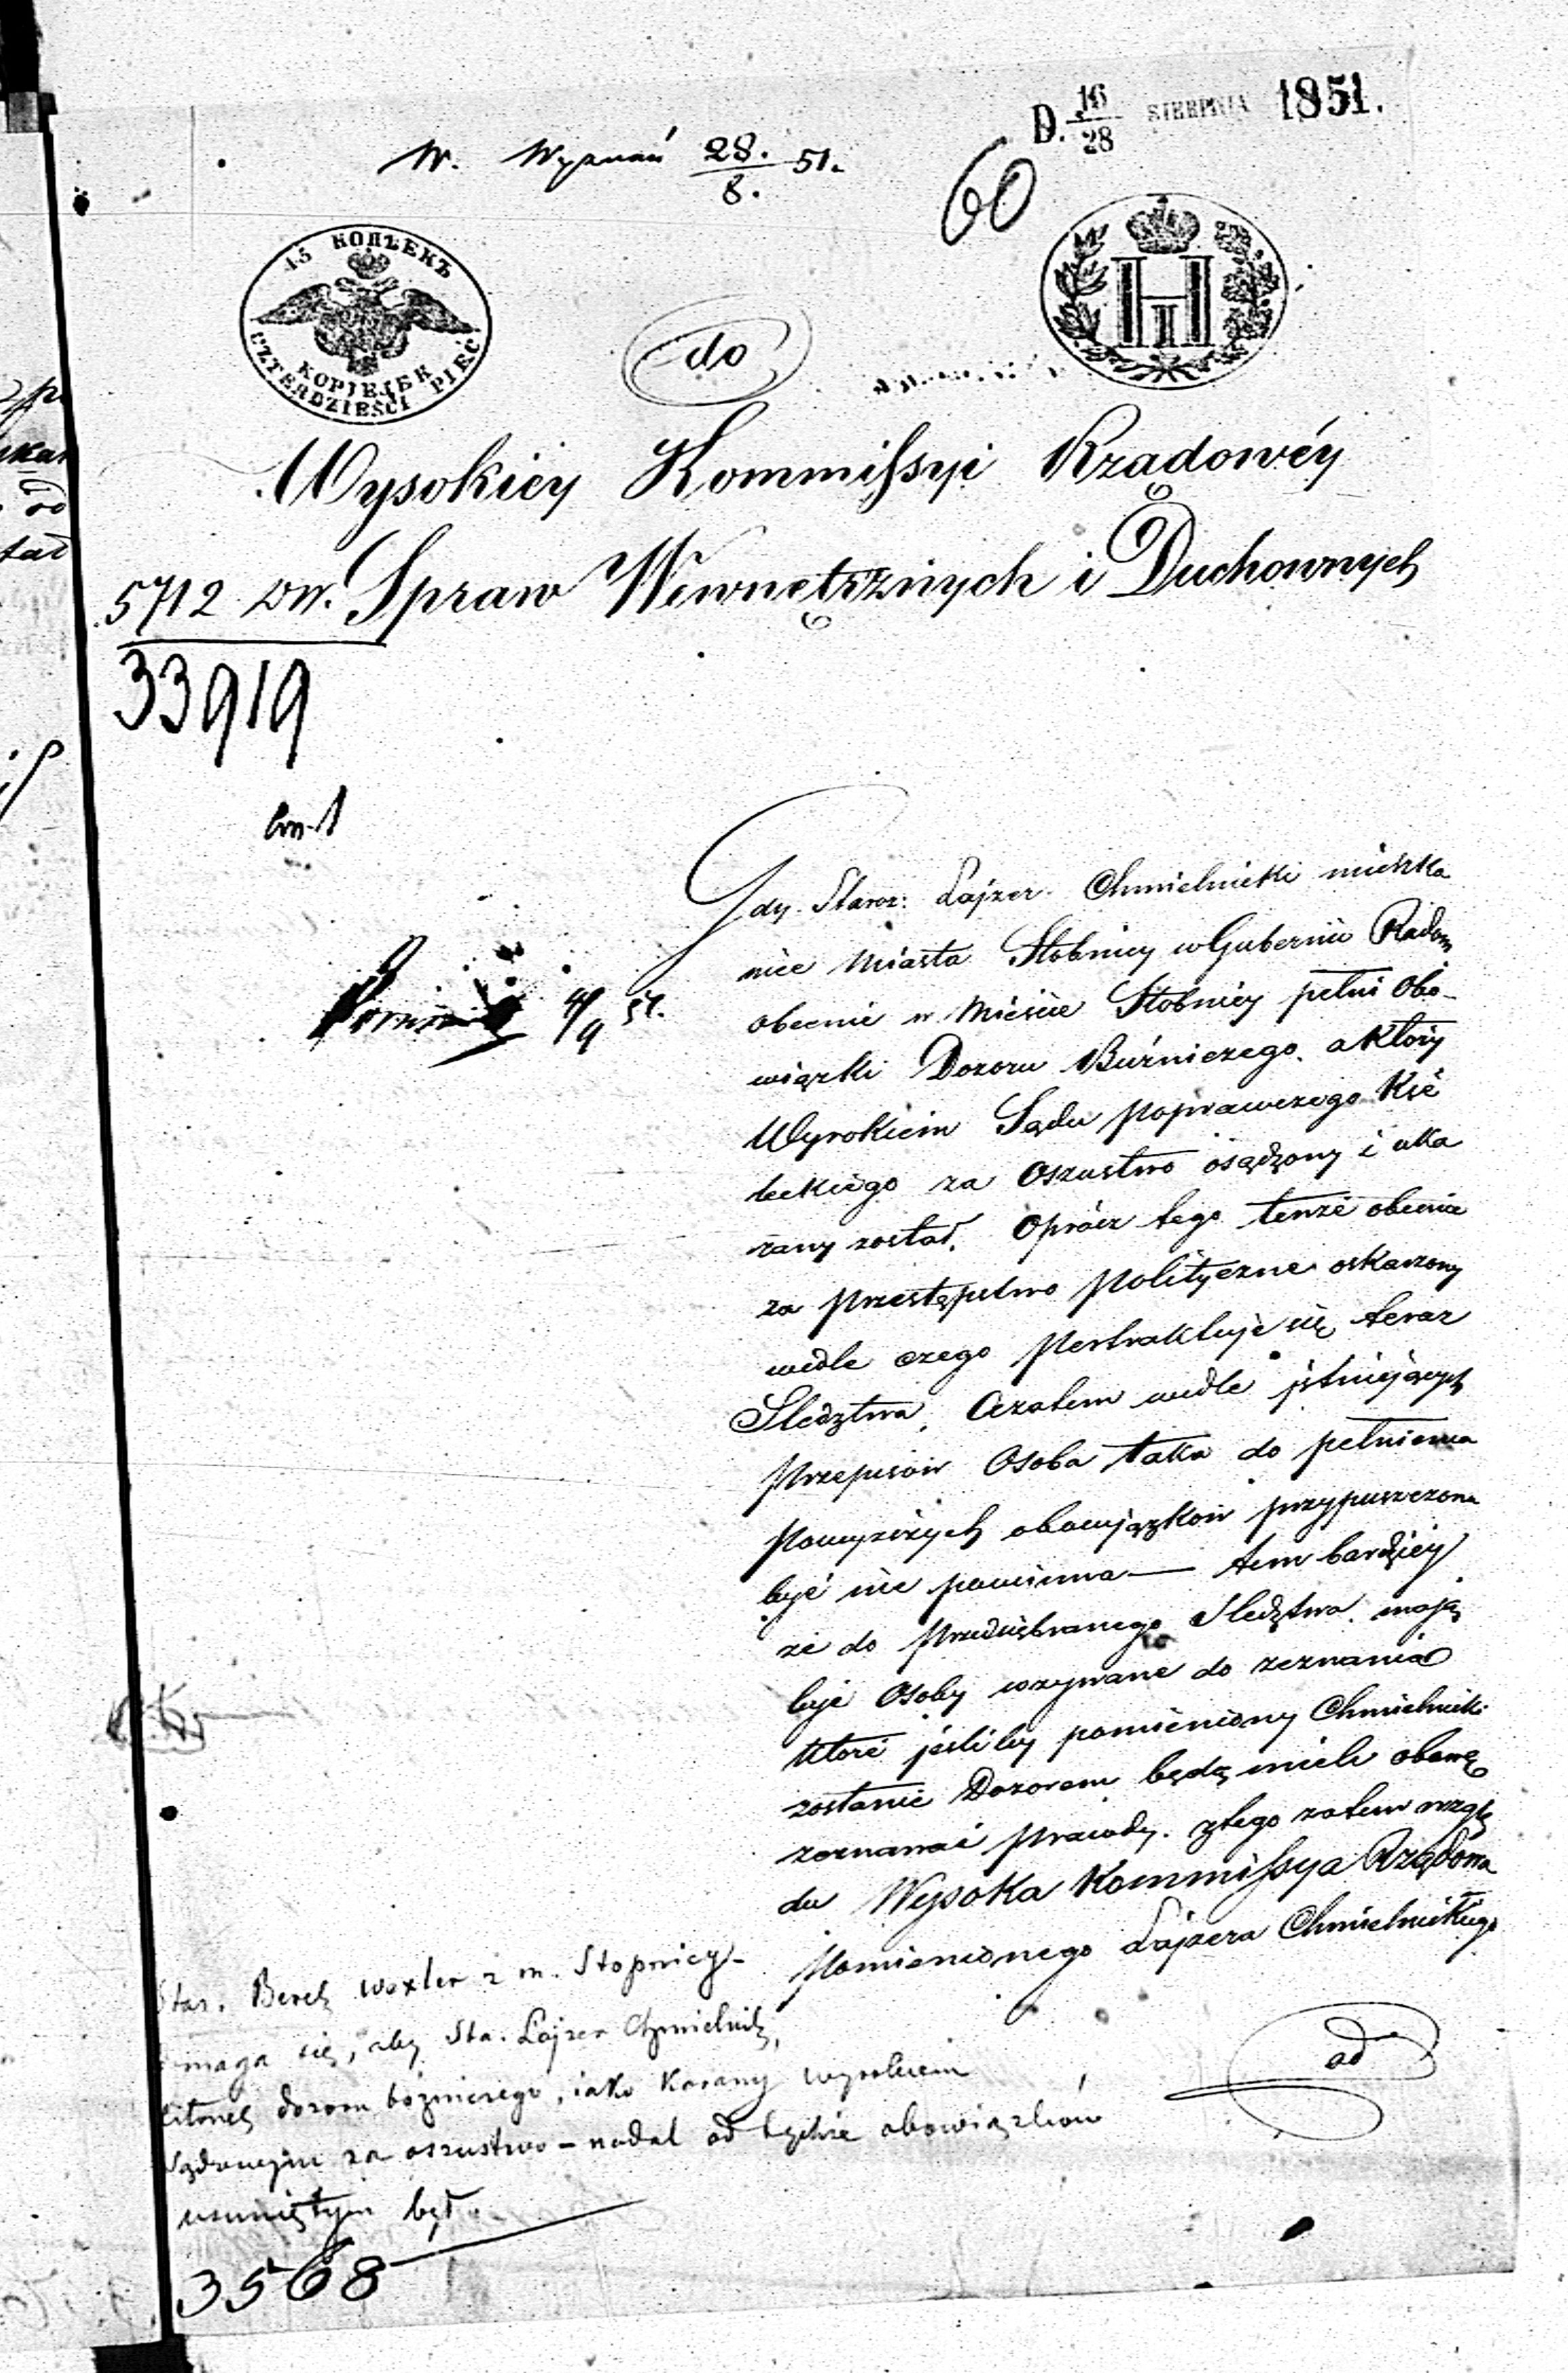 D. 16/28 SIERPNIA 1851.
W. Wyznań 28./8. 51.
60
45 КОПѢЕКЪ
CZTERDZIEŚCI PIĘĆ
KOPIEJEK
do
Wysokiey Kommissyi Rządowéy
5712 DW. Spraw Wewnętrznych i Duchownych
33919
Gdy Staroz: Łajzer Chmielnicki mieszka
niec Miasta Stobnicy w Gubernii Radom
obecnie w Mieście Stobnicy pełni Obo-
wiązki Dozoru Buźniczego, a który
Wyrokiem Sądu Poprawczego Kie
leckiego za Oszustwo osądzony i uka
rany został. Oprócz tego tenże obecnie
za Przestępstwo Polityczne oskarzony
wedle czego Pertraktuje się teraz
Sledztwo, Azatem wedle jstniejących
Przepisów Osoba taka do pełnienia
Powyższych obowjązków przypuszczona
być nie powinna — tem bardziey
że do Przedsiębranego Sledztwa mają
być Osoby wzywane do zeznania
które jeśliby pomieniony Chmielnicki
zostanie Dozorem będą mieli obawę
zeznawać Prawdy. ztego zatem wzglę
du Wysoka Kommissya Rządowa
Pomienionego Łajzera Chmielnickiego
od
Star. Berek Wexler z m. Stopnicy -
maga się, aby Sta. Łajzer Chmielnick,
członek dozoru bóżniczego, iako karany wyrokiem
Sądowym za oszustwo - nadal od tychże obowiązków
usuniętym był.
3568
4/9 51.